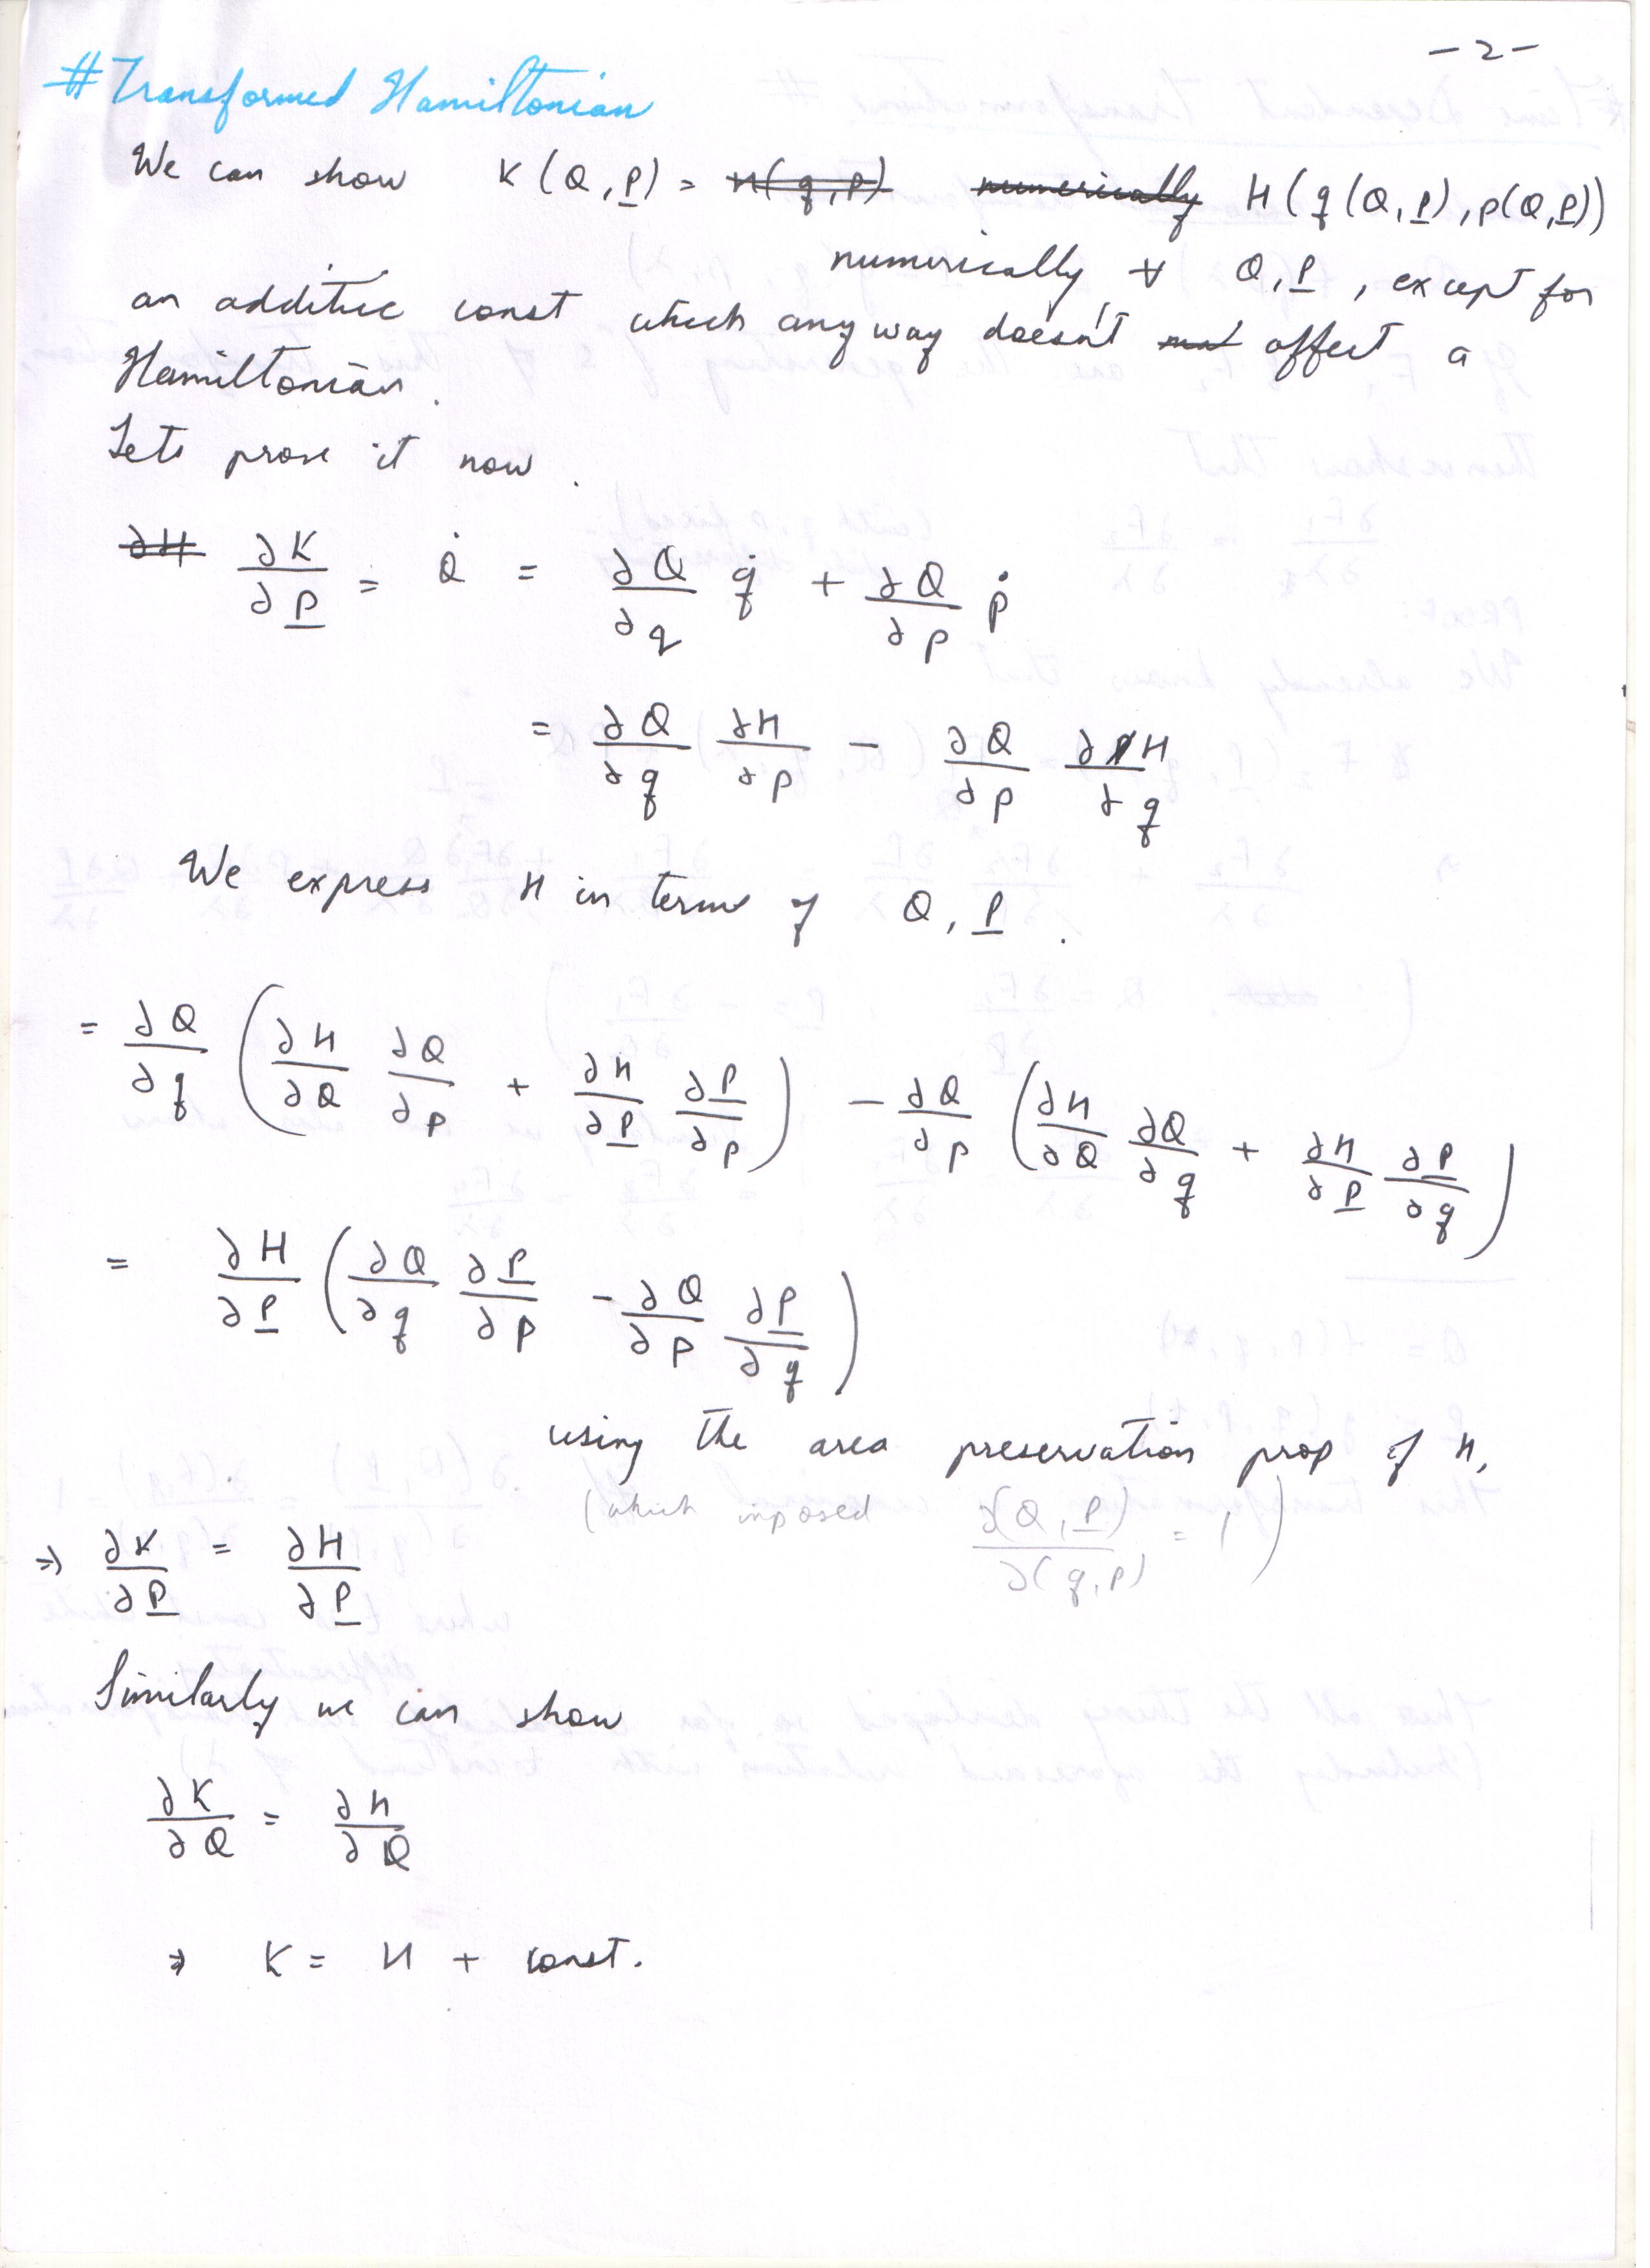 -2-
# Transformed Hamiltonian
We can show K(Q,P̲) = ~~H(q,p)~~ ~~numerically~~ H(q(Q,P̲),p(Q,P̲))
numerically ∀ Q,P̲, except for
an additive const which anyway doesn't ~~mat~~ affect a
Hamiltonian.
Lets prove it now.
~~∂H~~ ∂K/∂P̲ = Q̇ = ∂Q/∂q q̇ + ∂Q/∂p ṗ
= ∂Q/∂q ∂H/∂p - ∂Q/∂p ∂H/∂q
We express H in terms of Q, P̲.
= ∂Q/∂q (∂H/∂Q ∂Q/∂p + ∂H/∂P̲ ∂P̲/∂p) - ∂Q/∂p (∂H/∂Q ∂Q/∂q + ∂H/∂P̲ ∂P̲/∂q)
= ∂H/∂P̲ (∂Q/∂q ∂P̲/∂p - ∂Q/∂p ∂P̲/∂q)
using the area preservation prop of H,
(which imposed ∂(Q,P̲)/∂(q,p) = 1)
⇒ ∂K/∂P̲ = ∂H/∂P̲
Similarly we can show
∂K/∂Q = ∂H/∂Q
⇒ K = H + const.